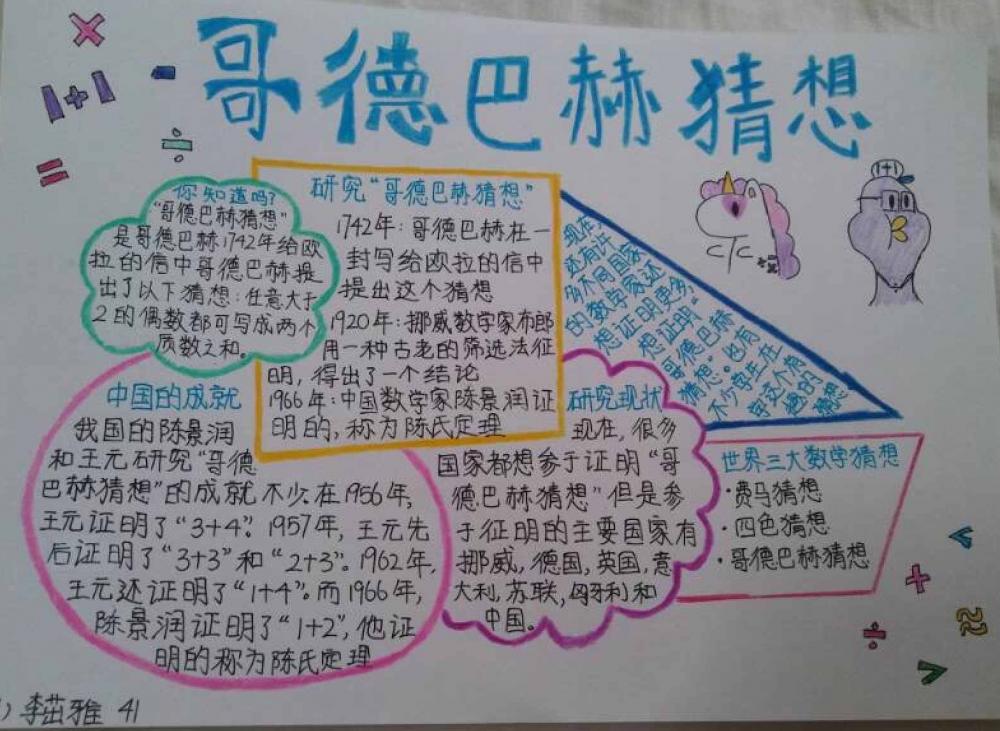 哥德巴赫猜想
1+1
你知道吗?
"哥德巴赫猜想"
是哥德巴赫1742年给欧
拉的信中哥德巴赫提
出了以下猜想:任意大于
2的偶数都可写成两个
质数之和。
研究"哥德巴赫猜想"
1742年:哥德巴赫在一
封写给欧拉的信中
提出这个猜想
1920年:挪威数学家布郎
用一种古老的筛选法征
明,得出了一个结论
1966年:中国数学家陈景润证
明的,称为陈氏定理
现在
还有许
多不同国家
的数学家还
想证明更多,
想证明"
哥德巴赫
猜想"。也有
不少学生在
学这个想
趣的
猜想
1+1
中国的成就
我国的陈景润
和王元研究"哥德
巴赫猜想"的成就不少.在1956年,
王元证明了"3+4".1957年,王元先
后证明了"3+3"和"2+3"。1962年,
王元还证明了"1+4"。而1966年,
陈景润证明了"1+2",他证
明的称为陈氏定理
研究现状
现在,很多
国家都想参于证明"哥
德巴赫猜想"但是参
于征明的主要国家有
挪威,德国,英国,意
大利,苏联,匈牙利和
中国。
世界三大数学猜想
·费马猜想
·四色猜想
·哥德巴赫猜想
李茁雅 41